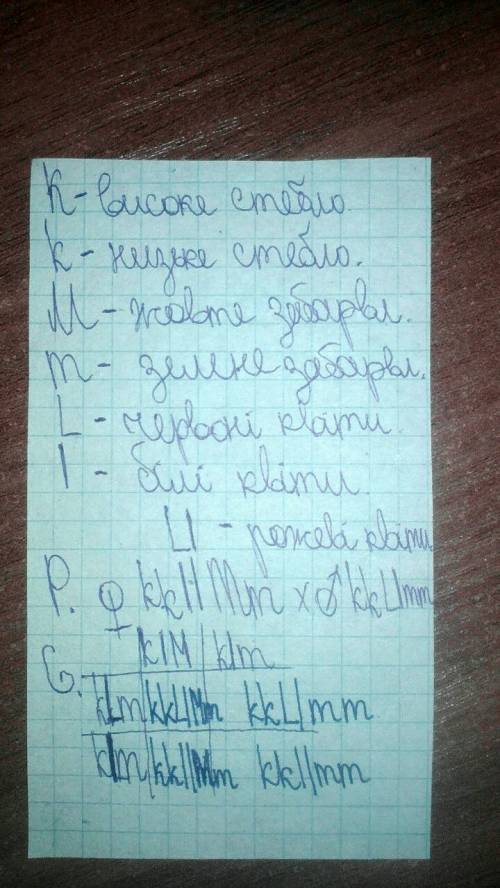 K - високе стебло.
k - низьке стебло.
M - жовте забарвл.
m - зелене забарвл.
L - червоні квіти.
l - білі квіти.
Ll - рожеві квіти
P. ♀ kkllMm x ♂ kkLlmm
klM klm
G.
kLm kkLlMm kkLlmm
klm kkllMm kkllmm